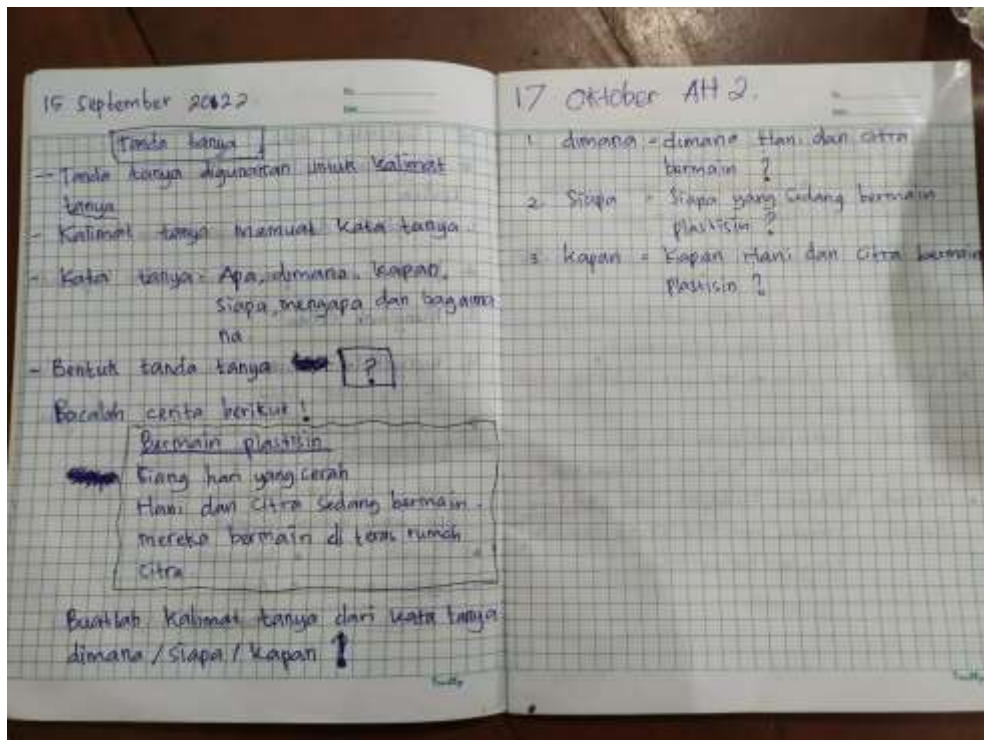 15 September 2022
Tanda tanya
- Tanda tanya digunakan untuk kalimat
tanya
- Kalimat tanya memuat kata tanya.
- Kata tanya = Apa, dimana, kapan,
siapa, mengapa dan bagaima
na
- Bentuk tanda tanya ?
Bacalah cerita berikut !
Bermain plastisin
Siang hari yang cerah
Hani dan Citra sedang bermain.
mereka bermain di teras rumah
Citra
Buatlah kalimat tanya dari kata tanya
dimana / siapa / kapan !
17 Oktober AH 2.
1 dimana = dimana Hani dan citra
bermain ?
2. Siapa = Siapa yang sedang bermain
plastisin ?
3. kapan = kapan Hani dan Citra bermain
plastisin ?